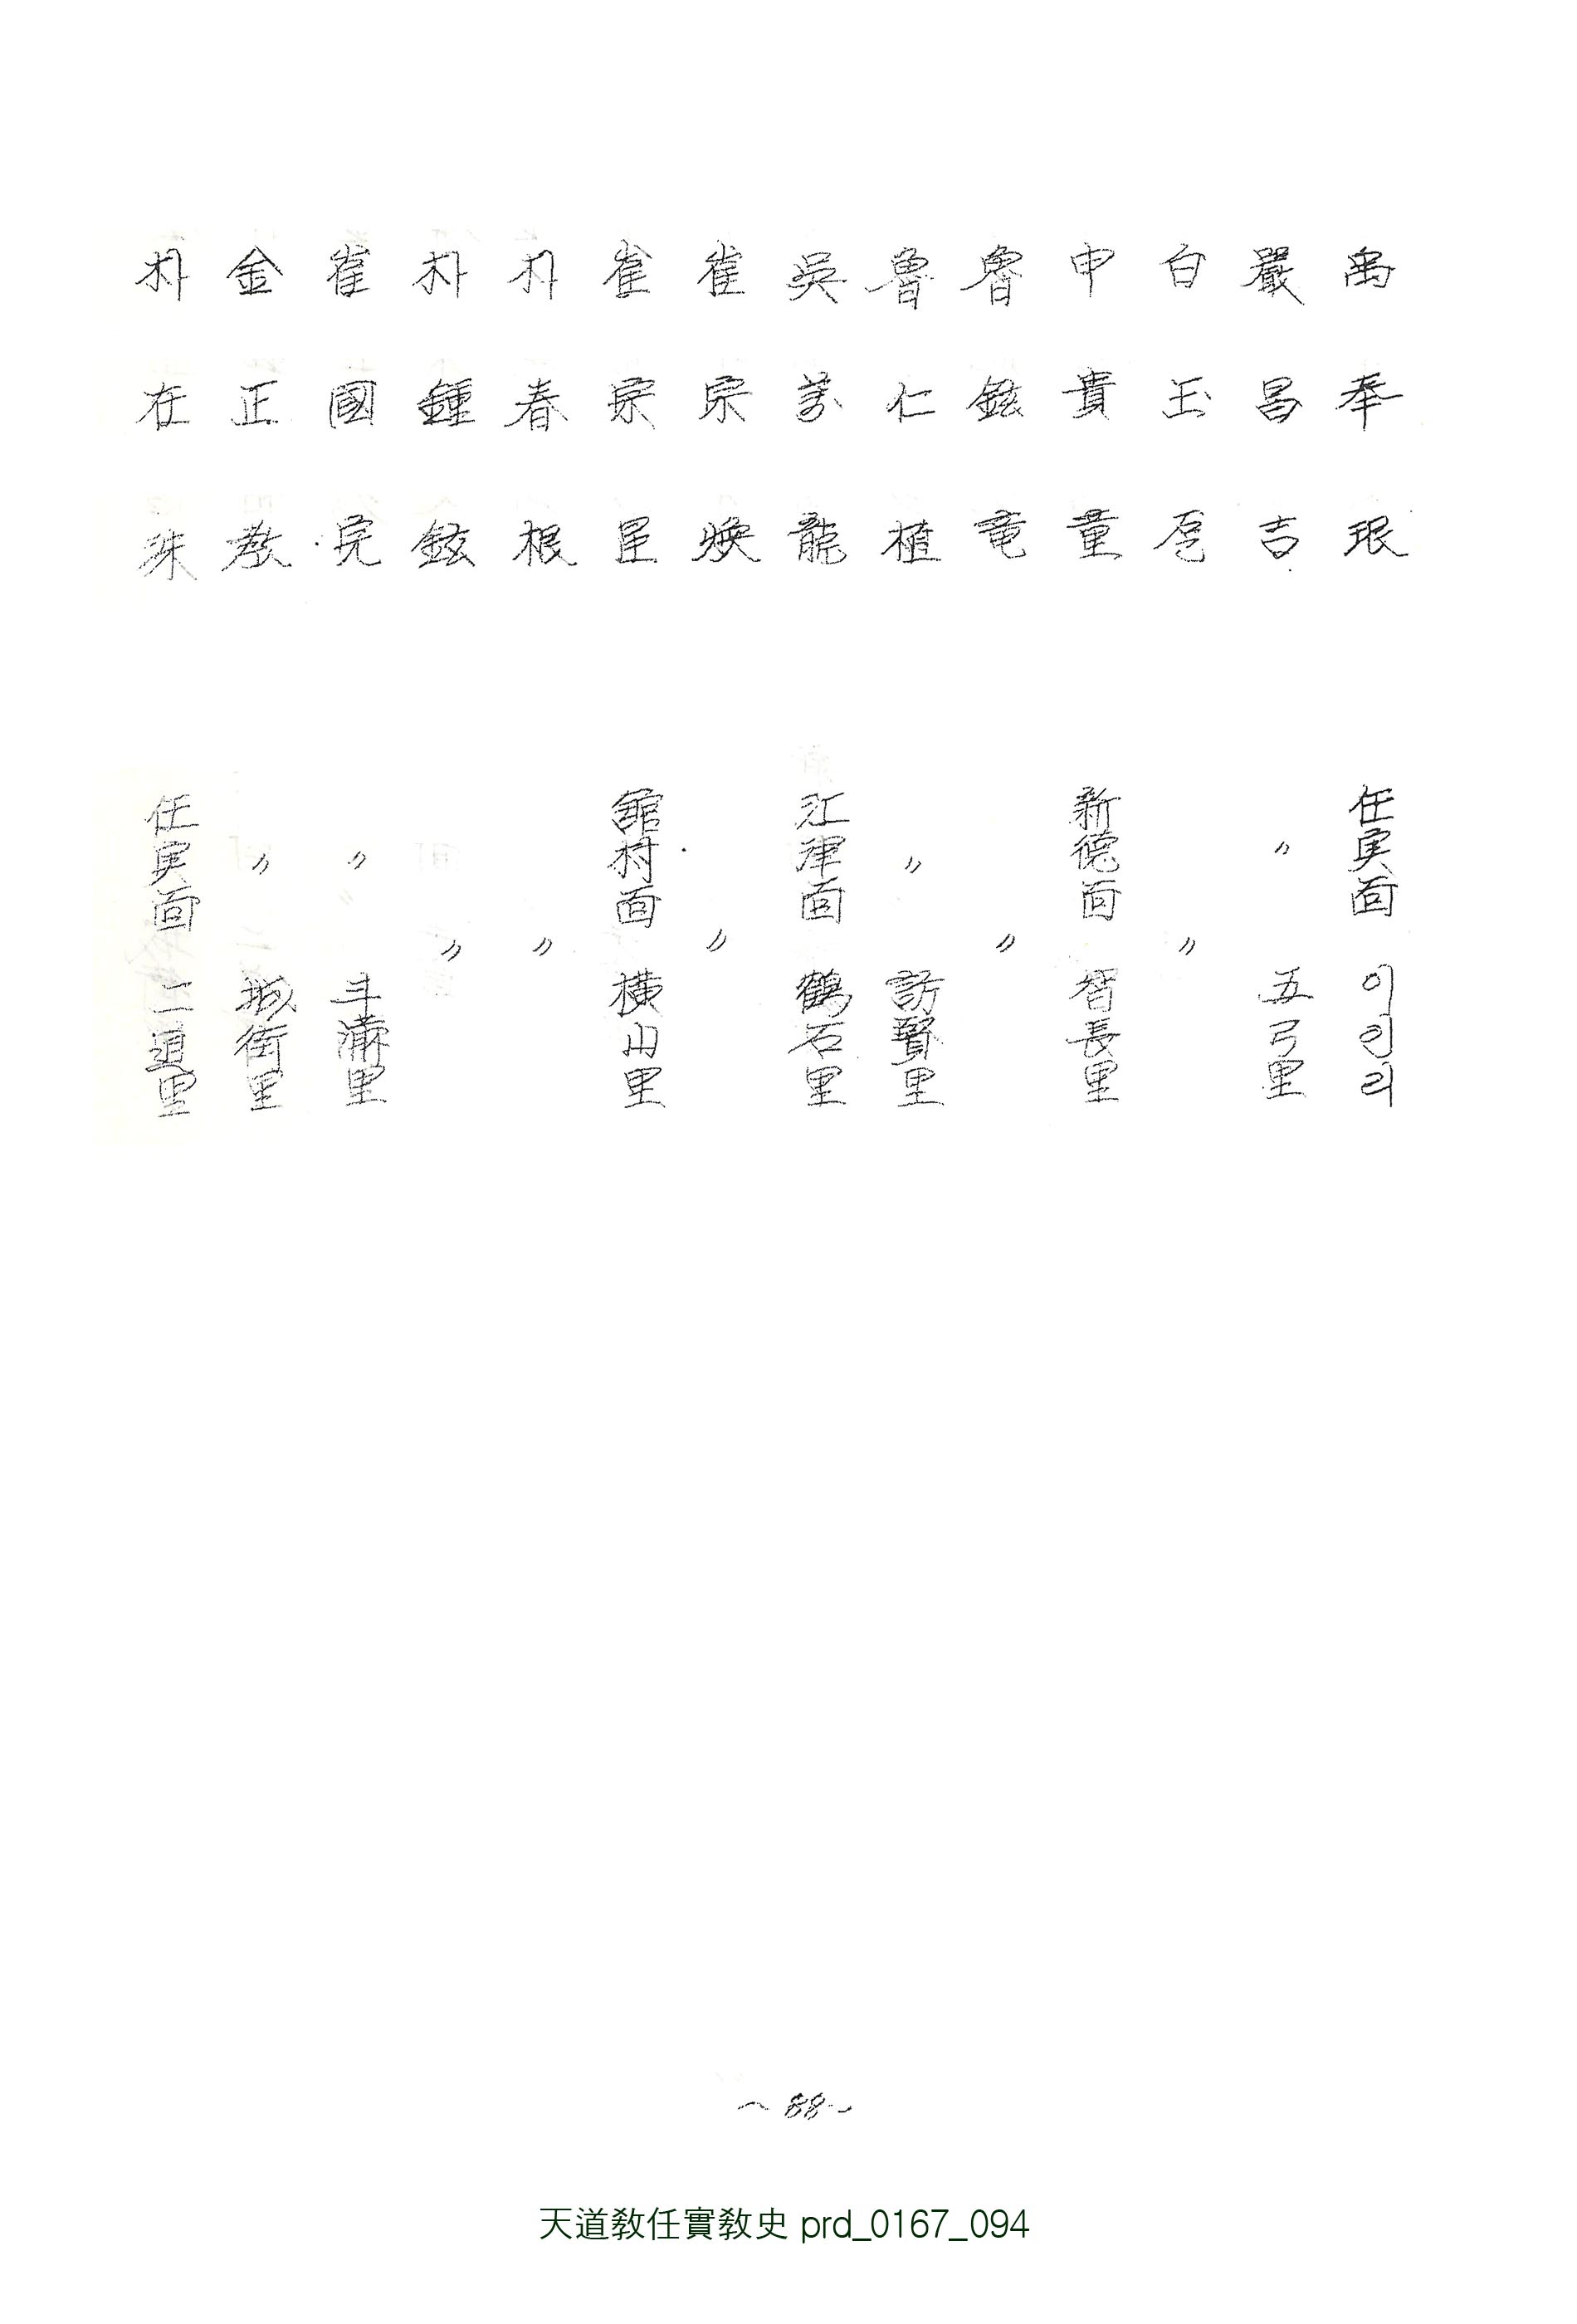 禹奉珢 任実面 이인리
嚴昌吉 〃 五弓里
白玉 〃
申貴童 新德面 智長里
魯鉉竜 〃
魯仁植 〃 訪賢里
吳萬龍 江津面 鶴石里
崔宗煥 〃
崔宗 舘村面 橫山里
朴春根 〃
朴鍾鉉 〃
崔國完 〃 斗滿里
金正敎 〃 城街里
朴在洙 任実面 二道里
~ 88 ~
天道敎任實敎史 prd_0167_094